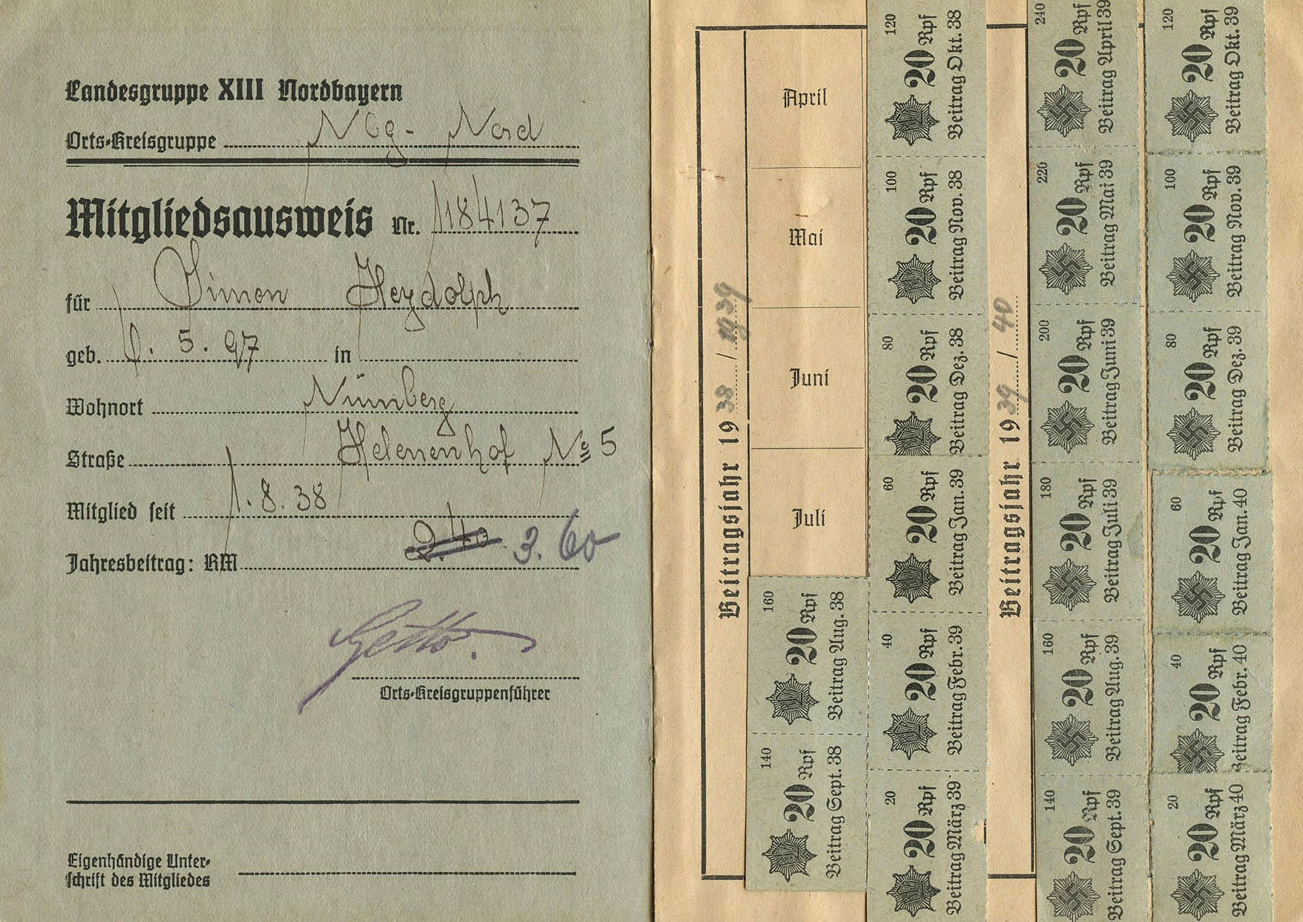 Landesgruppe XIII Nordbayern
Orts-Kreisgruppe Nbg- Nord
Mitgliedsausweis Nr. 1184137
für Simon Heydolph
geb. 6. 5. 97 in
Wohnort Nürnberg
Straße Helenenhof No 5
Mitglied seit 1.8.38
Jahresbeitrag: RM 2.40 3.60
Getto.
Orts-Kreisgruppenführer
Eigenhändige Unter-
schrift des Mitgliedes
Beitragsjahr 1938 / 1939
April
Mai
Juni
Juli
160 20 Rpf Beitrag Aug. 38
140 20 Rpf Beitrag Sept. 38
120 20 Rpf Beitrag Okt. 38
100 20 Rpf Beitrag Nov. 38
80 20 Rpf Beitrag Dez. 38
60 20 Rpf Beitrag Jan. 39
40 20 Rpf Beitrag Febr. 39
20 20 Rpf Beitrag März 39
Beitragsjahr 1939 / 40
240 20 Rpf Beitrag April 39
220 20 Rpf Beitrag Mai 39
200 20 Rpf Beitrag Juni 39
180 20 Rpf Beitrag Juli 39
160 20 Rpf Beitrag Aug. 39
140 20 Rpf Beitrag Sept. 39
120 20 Rpf Beitrag Okt. 39
100 20 Rpf Beitrag Nov. 39
80 20 Rpf Beitrag Dez. 39
60 20 Rpf Beitrag Jan. 40
40 20 Rpf Beitrag Febr. 40
20 20 Rpf Beitrag März 40